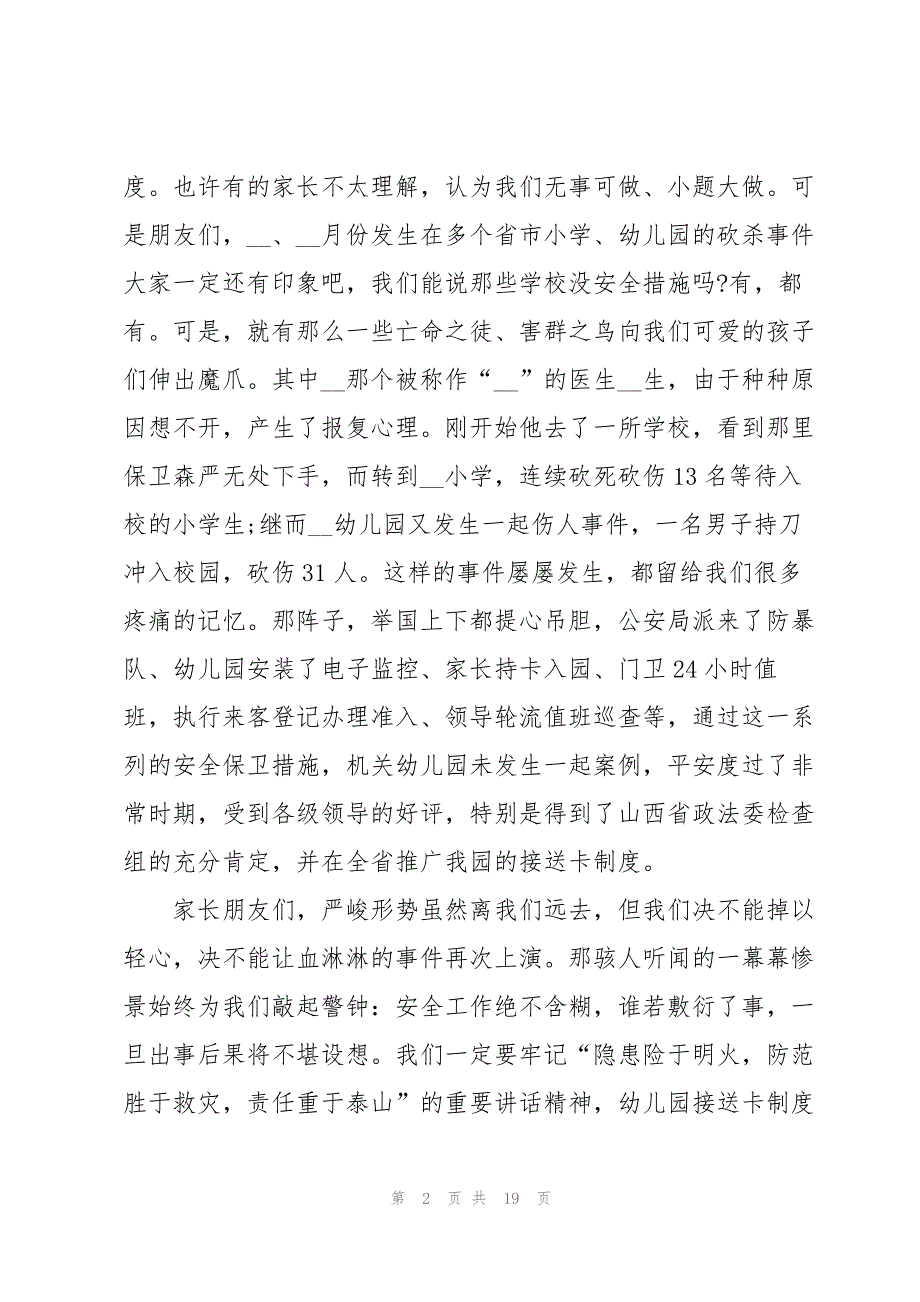 度。也许有的家长不太理解，认为我们无事可做、小题大做。可
是朋友们，__、__月份发生在多个省市小学、幼儿园的砍杀事件
大家一定还有印象吧，我们能说那些学校没安全措施吗?有，都
有。可是，就有那么一些亡命之徒、害群之鸟向我们可爱的孩子
们伸出魔爪。其中__那个被称作“__”的医生__生，由于种种原
因想不开，产生了报复心理。刚开始他去了一所学校，看到那里
保卫森严无处下手，而转到__小学，连续砍死砍伤 13 名等待入
校的小学生;继而__幼儿园又发生一起伤人事件，一名男子持刀
冲入校园，砍伤 31 人。这样的事件屡屡发生，都留给我们很多
疼痛的记忆。那阵子，举国上下都提心吊胆，公安局派来了防暴
队、幼儿园安装了电子监控、家长持卡入园、门卫 24 小时值
班，执行来客登记办理准入、领导轮流值班巡查等，通过这一系
列的安全保卫措施，机关幼儿园未发生一起案例，平安度过了非
常时期，受到各级领导的好评，特别是得到了山西省政法委检查
组的充分肯定，并在全省推广我园的接送卡制度。
家长朋友们，严峻形势虽然离我们远去，但我们决不能掉以
轻心，决不能让血淋淋的事件再次上演。那骇人听闻的一幕幕惨
景始终为我们敲起警钟：安全工作绝不含糊，谁若敷衍了事，一
旦出事后果将不堪设想。我们一定要牢记“隐患险于明火，防范
胜于救灾，责任重于泰山”的重要讲话精神，幼儿园接送卡制度
第 2 页 共 19 页